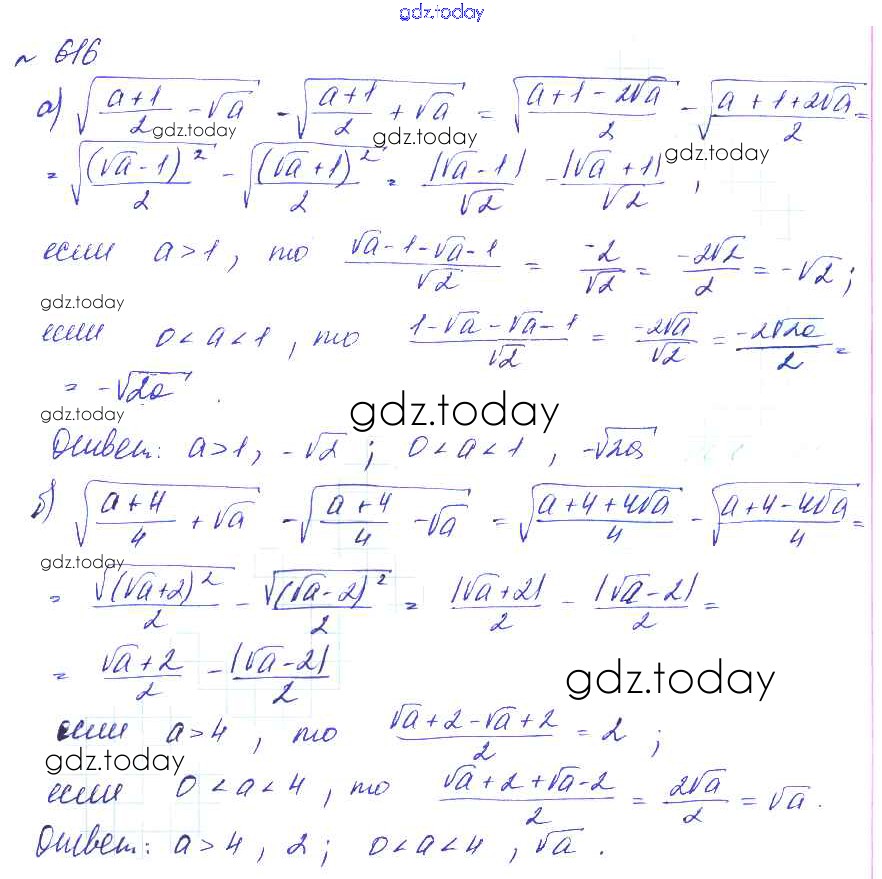 gdz.today
~ 616
а) √((a+1)/2 - √a) - √((a+1)/2 + √a) = √((a+1-2√a)/2) - √((a+1+2√a)/2) =
gdz.today gdz.today
= √((√a-1)²/2) - √((√a+1)²/2) = |√a-1|/√2 - |√a+1|/√2 ;
gdz.today
если a>1, то (√a-1-√a-1)/√2 = -2/√2 = -2√2/2 = -√2 ;
gdz.today
если 0<a<1, то (1-√a-√a-1)/√2 = -2√a/√2 = -2√2a/2 =
= -√2a .
gdz.today gdz.today
Ответ: a>1, -√2 ; 0<a<1, -√2a
б) √((a+4)/4 + √a) - √((a+4)/4 - √a) = √((a+4+4√a)/4) - √((a+4-4√a)/4) =
gdz.today
= √(√a+2)²/2 - √(√a-2)²/2 = |√a+2|/2 - |√a-2|/2 =
= (√a+2)/2 - |√a-2|/2
gdz.today
если a>4, то (√a+2-√a+2)/2 = 2 ;
gdz.today
если 0<a<4, то (√a+2+√a-2)/2 = 2√a/2 = √a.
Ответ: a>4, 2; 0<a<4, √a.